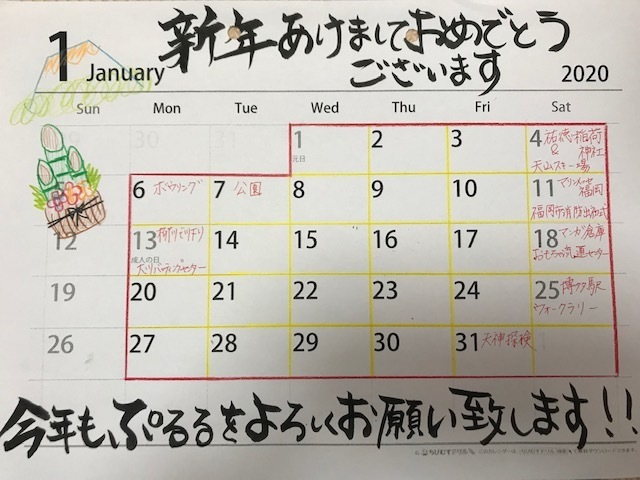 新年あけましておめでとう
ございます
1 January
2020
Sun Mon Tue Wed Thu Fri Sat
29 30 31 1 2 3 4
元日
祐徳稲荷
&神社
天山スキー場
6 7 8 9 10 11
ボウリング
公園
マリンメッセ
福岡
福岡市消防出初式
12 13 14 15 16 17 18
成人の日
マンガ倉庫
おもちゃ流通センター
19 20 21 22 23 24 25
博多駅
ウォークラリー
26 27 28 29 30 31 1
天神探検
今年も、ぷるるをよろしくお願い致します!!
ちびむすドリル